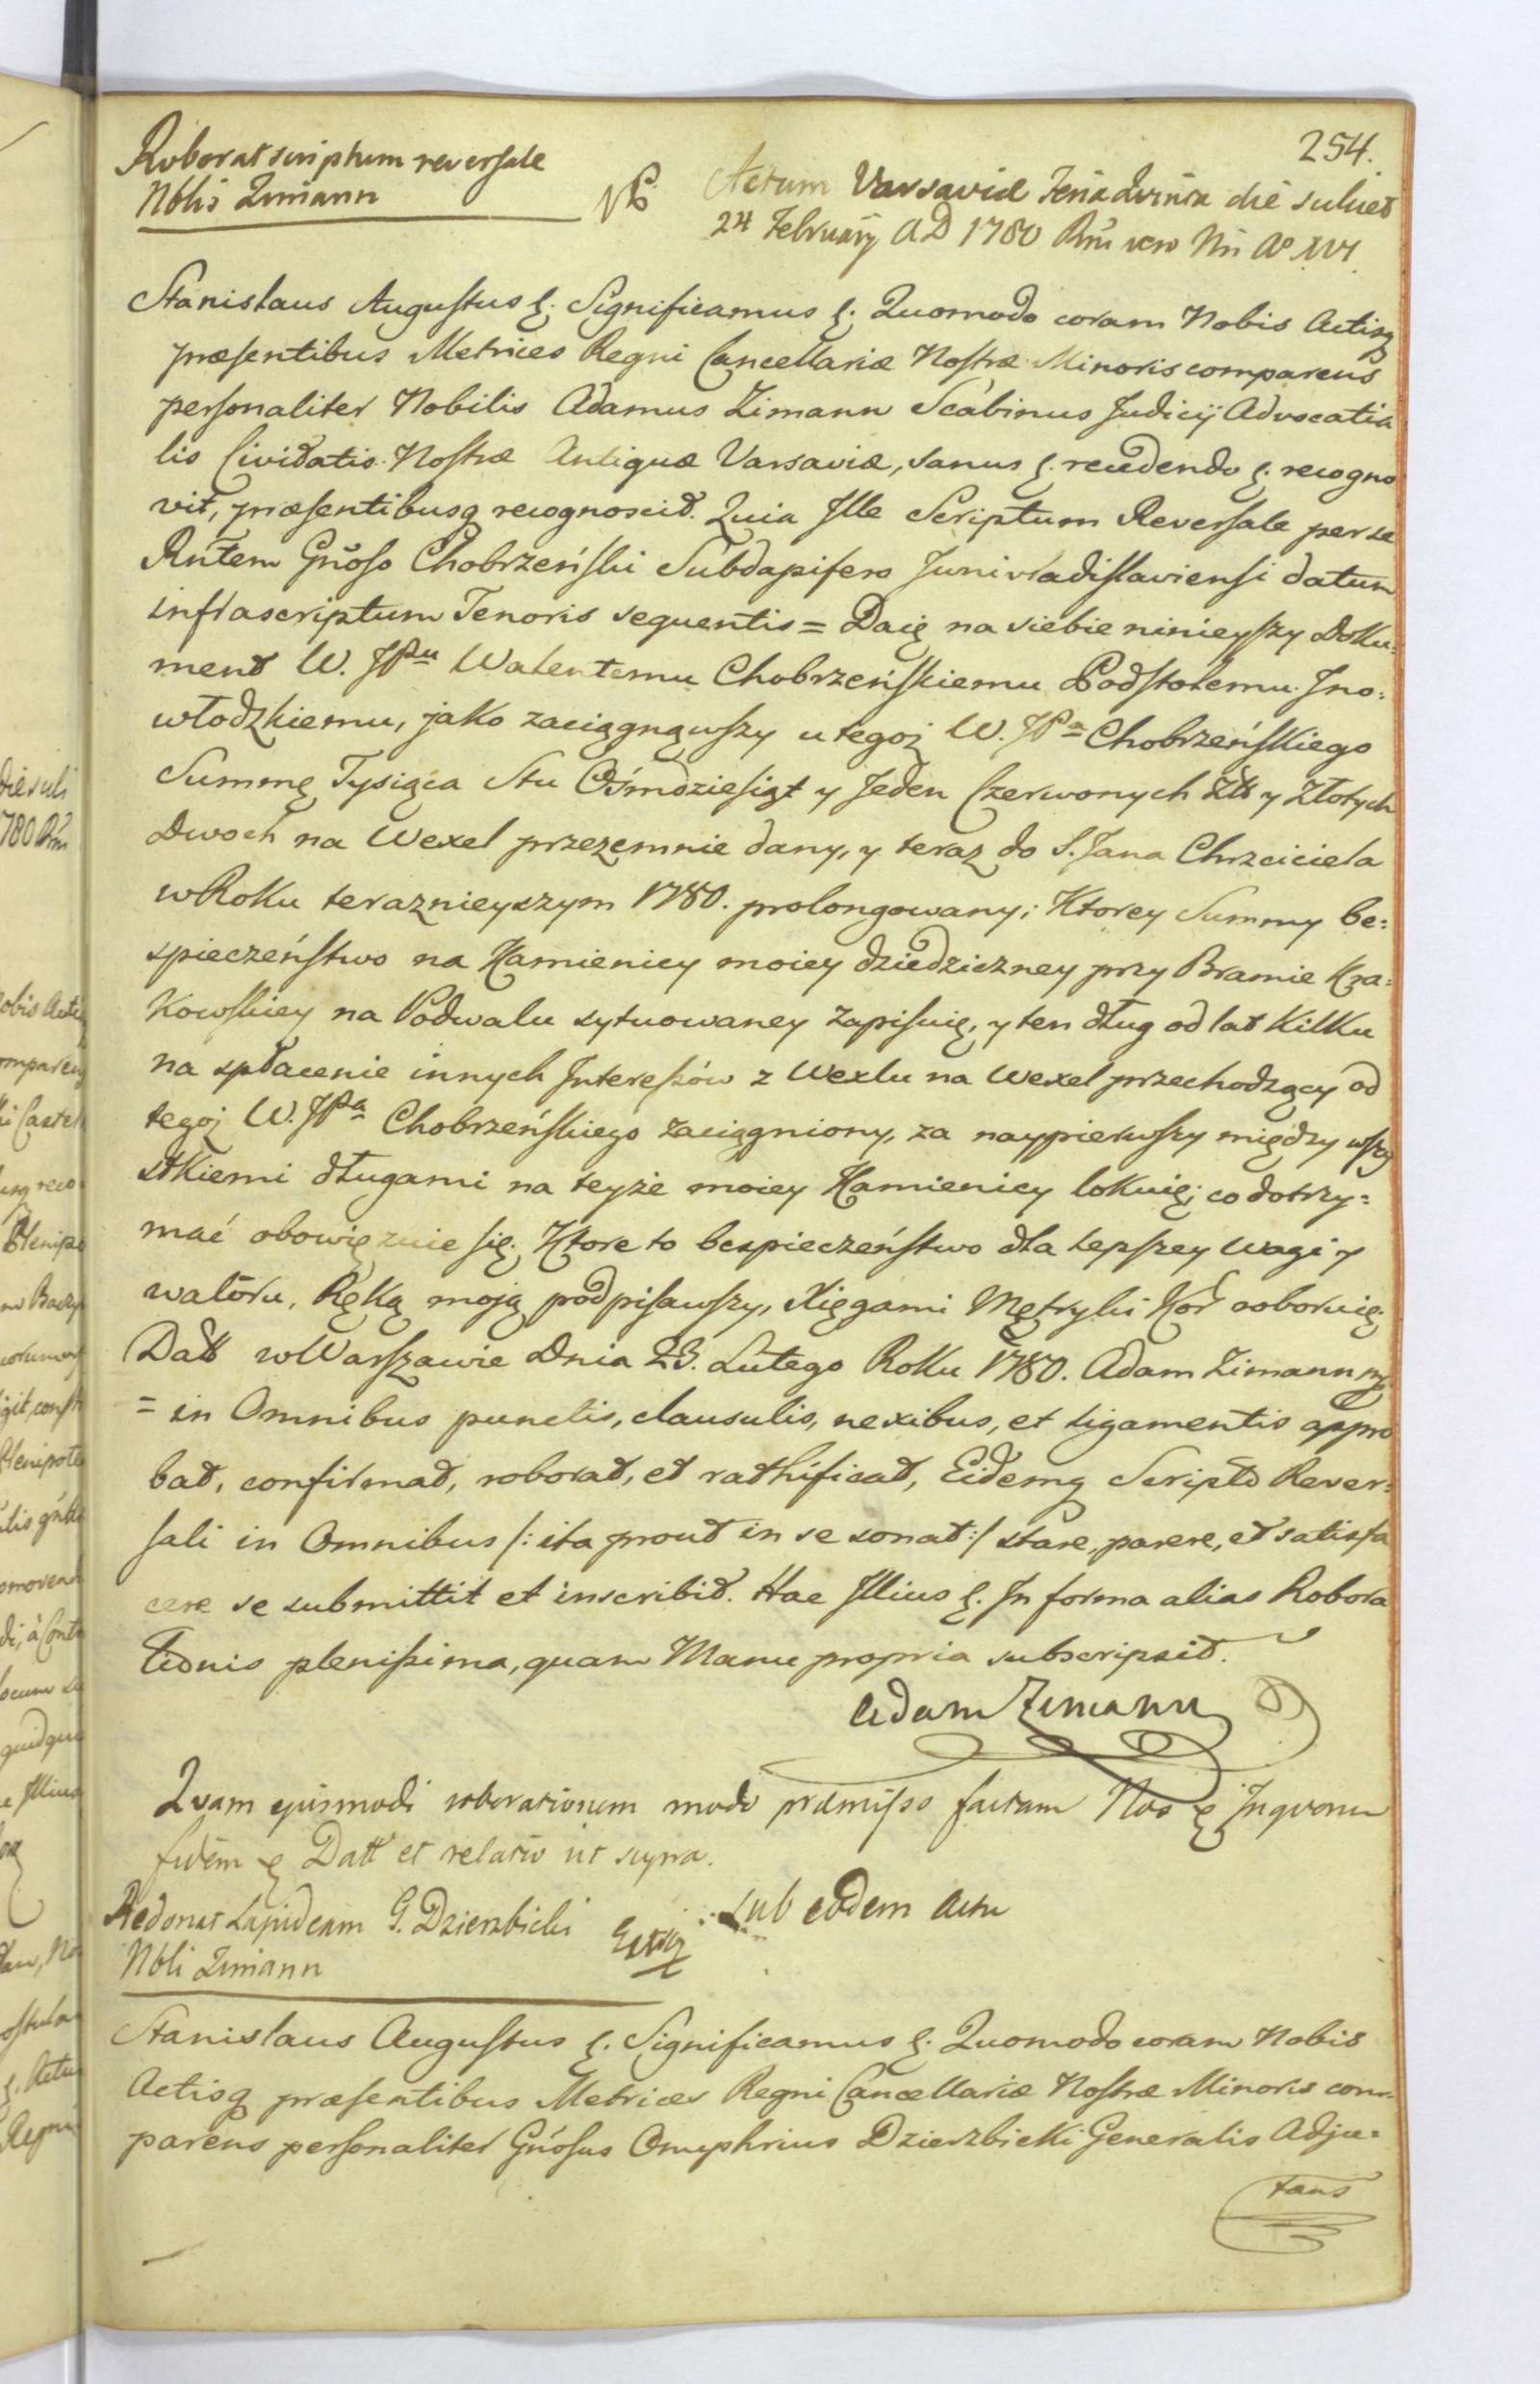 254.
Roborat scriptum reversale
Nblis Zimann
Actum Varsaviæ Feria quinta die scilicet
24 February AD 1780 Rni vero Nri Aº XVI
Stanislaus Augustus &. Significamus &. Quomodo coram Nobis Actisq
præsentibus Metrices Regni Cancellariæ Nostræ Minoris comparens
personaliter Nobilis Adamus Zimann Scabinus Judicij Advocatia
lis Civitatis Nostræ Antiquæ Varsaviæ, sanus &. recedendo &. recogno
vit, præsentibusq recognoscit. Quia Ille Scriptum Reversale per se
Rntem Gnoso Chobrzeński Subdapifero Junivladislaviensi datum
infrascriptum Tenoris sequentis = Daię na siebie ninieyszy Doku:
ment W. JPu Walentemu Chobrzeńskiemu Podstolemu Jno:
włodzkiemu, jako zaciągnąwszy u tegoż W. JPa Chobrzeńskiego
Summę Tysiąca Stu Ośmdziesiąt y Jeden Czerwonych Złł y Złotych
Dwoch na Wexel przezemnie dany, y teraz do S. Jana Chrzciciela
w Roku teraznieyszym 1780. prolongowany; Ktorey Summy be:
spieczeństwo na Kamienicy moiey dziedziczney przy Bramie Kra:
kowskiey na Podwalu sytuowaney zapisuię, y ten dług od lat kilku
na spłacenie innych Interessów z Wexlu na Wexel przechodzący od
tegoż W. JPa Chobrzeńskiego zaciągniony, za naypierwszy między wszy
stkiemi długami na teyże moiey Kamienicy lokuię; co dotrzy=
mać obowięzuie się. Ktore to bespieczeństwo dla lepszey wagi y
waloru, Ręką moją podpisawszy, Xięgami Metryki Kor roboruię.
Datt w Warszawie Dnia 23. Lutego Roku 1780. Adam Zimann mp
= in Omnibus punctis, clausulis, nexibus, et ligamentis appro
bat, confirmat, roborat, et rathificat, Eidemq Scripto Rever=
sali in Omnibus /: ita prout in se sonat :/ stare, parere, et satisfa
cere se submittit et inscribit. Hac Illius &. In forma alias Robora
tionis plenissima, quam Manu propria subscripsit.
Adam Zimann
Quam ejusmodi roborationem modo præmisso factam Nos & Inquorum
fidem & Datt et relatio ut supra.
Redonat Lapideam G. Dzierzbicki
Nbli Zimann
sub eodem Actu
Stanislaus Augustus &. Significamus &. Quomodo coram Nobis
Actisq præsentibus Metrices Regni Cancellariæ Nostræ Minoris com=
parens personaliter Gnosus Onuphrius Dzierzbicki Generalis Adju=
tans